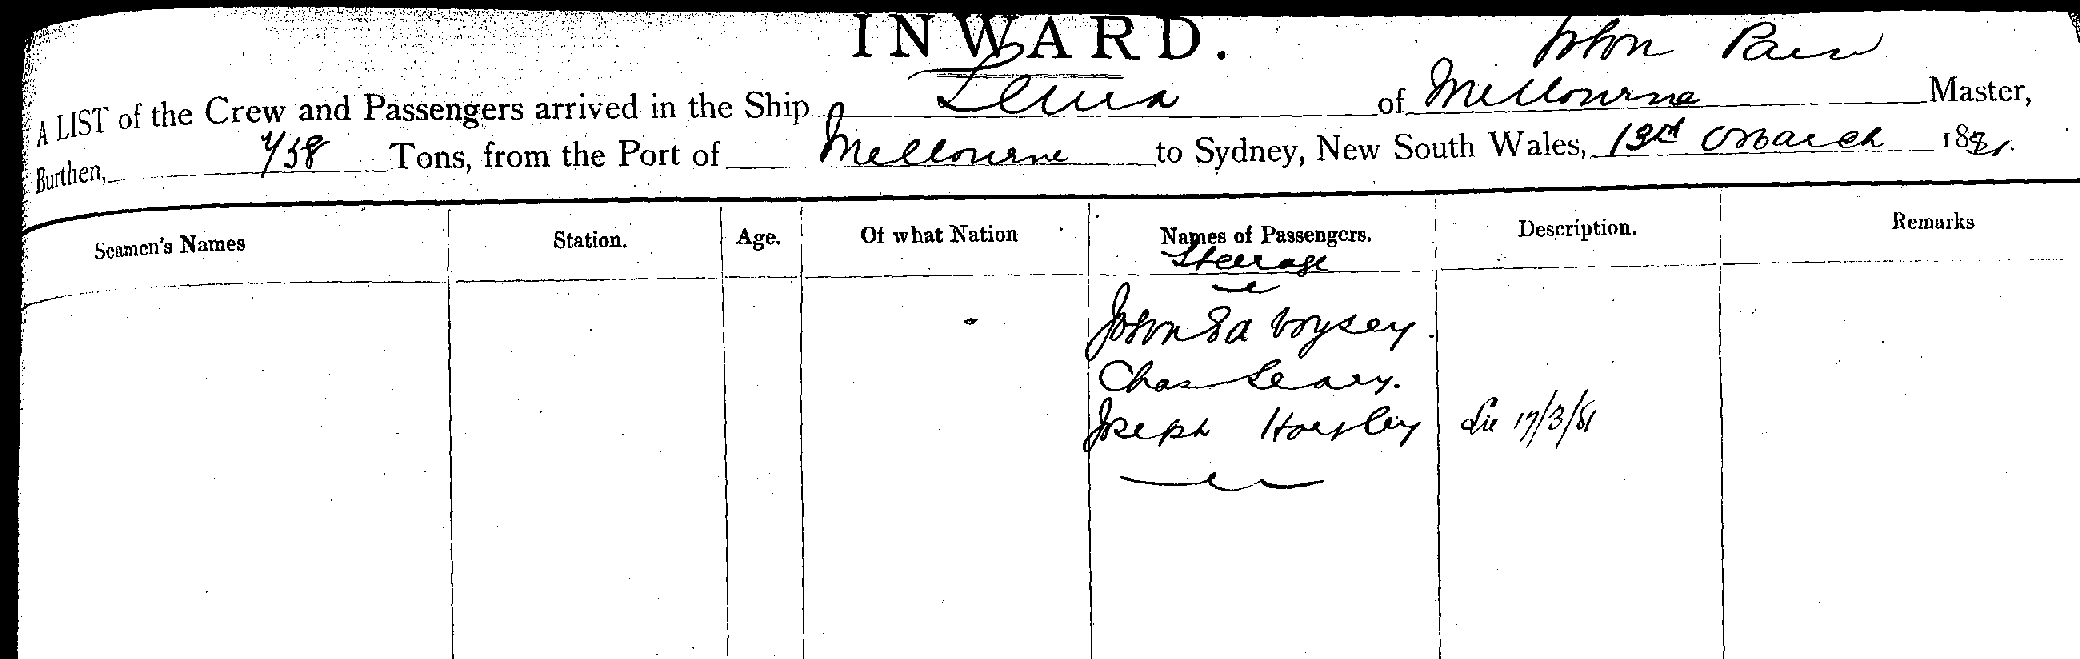 INWARD.
John
A LIST of the Crew and Passengers arrived in the Ship of Melbourne Master,
Burthen, 758 Tons, from the Port of Melbourne to Sydney, New South Wales, 13th March 1881.
Seamen's Names Station. Age. Of what Nation Names of Passengers. Description. Remarks
Steerage
John Ed Voysey.
Chas Leary.
Joseph Horsley 17/3/81